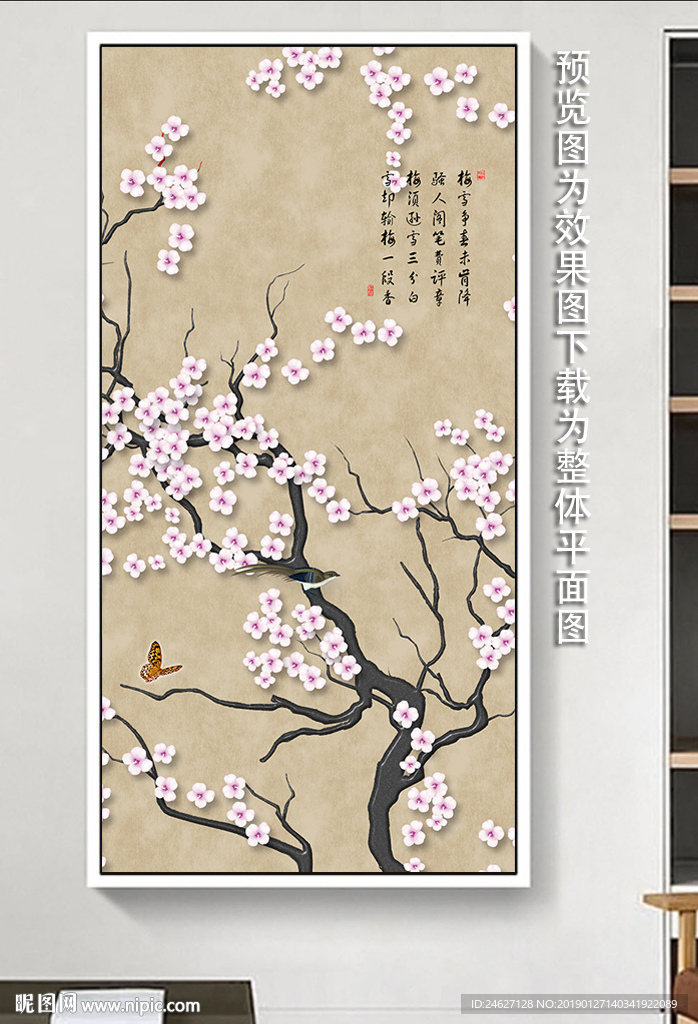 梅雪争春未肯降
骚人阁笔费评章
梅须逊雪三分白
雪却输梅一段香
预览图为效果图下载为整体平面图
昵图网 www.nipic.com
ID:24627128 NO:20190127140341922089